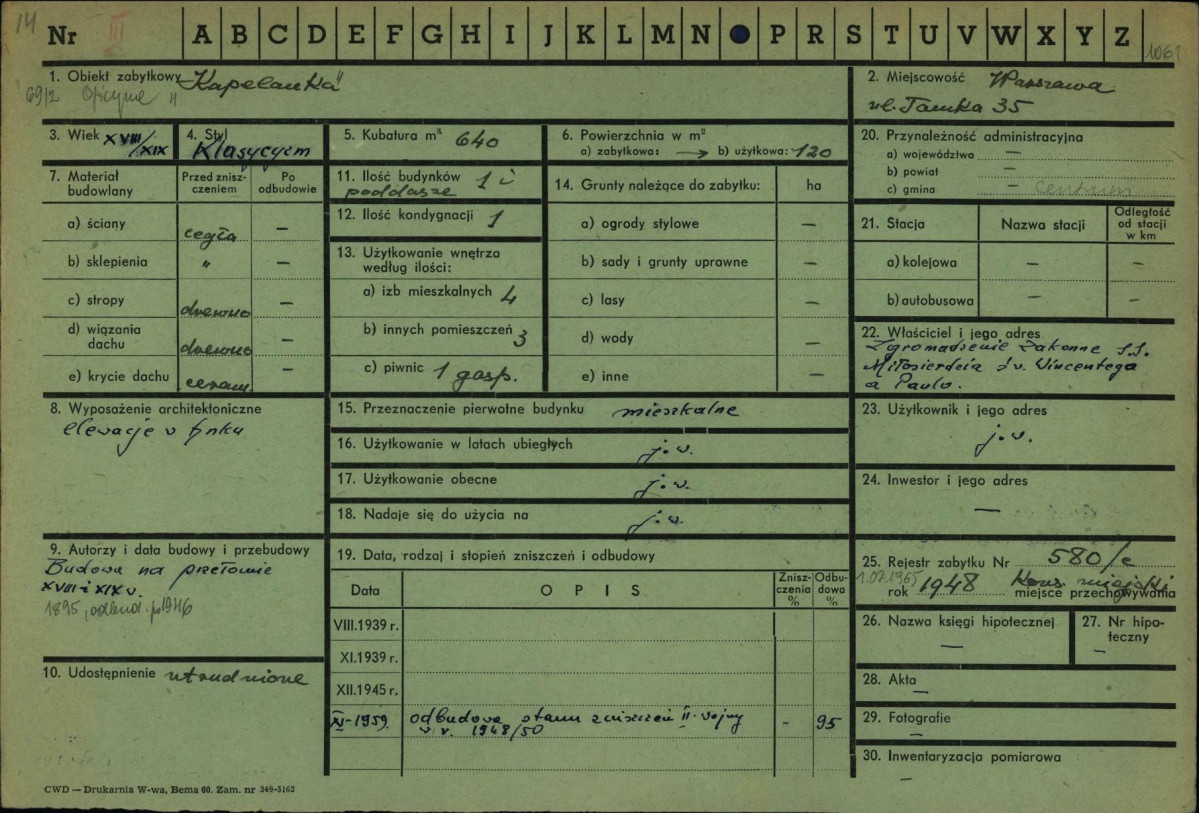 14
Nr III A B C D E F G H I J K L M N P R S T U V W X Y Z
1061
1. Obiekt zabytkowy "Kapelanka"
69/2 Oficyna "
2. Miejscowość Warszawa
ul. Tamka 35
3. Wiek XVIII/XIX
4. Styl Klasycyzm
5. Kubatura m³ 640
6. Powierzchnia w m²
a) zabytkowa: → b) użytkowa: 120
7. Materiał budowlany
Przed zniszczeniem
Po odbudowie
a) ściany cegła —
b) sklepienia " —
c) stropy drewno —
d) wiązania dachu drewno —
e) krycie dachu ceram. —
8. Wyposażenie architektoniczne
elewacje w tynku
9. Autorzy i data budowy i przebudowy
Budowa na przełomie
XVIII i XIX w.
1895, odbud. p. 1946
10. Udostępnienie utrudnione
11. Ilość budynków 1 i
poddasze
12. Ilość kondygnacji 1
13. Użytkowanie wnętrza
według ilości:
a) izb mieszkalnych 4
b) innych pomieszczeń 3
c) piwnic 1 gosp.
14. Grunty należące do zabytku: ha
a) ogrody stylowe —
b) sady i grunty uprawne —
c) lasy —
d) wody —
e) inne —
15. Przeznaczenie pierwotne budynku mieszkalne
16. Użytkowanie w latach ubiegłych j.w.
17. Użytkowanie obecne j.w.
18. Nadaje się do użycia na j.w.
19. Data, rodzaj i stopień zniszczeń i odbudowy
Data
O P I S
Zniszczenia %
Odbudowa %
VIII.1939 r.
XI.1939 r.
XII.1945 r.
XI-1959. odbudowa stanu zniszczeń II-wojny
w r. 1948/50 - 95
20. Przynależność administracyjna
a) województwo —
b) powiat —
c) gmina — Centrum
21. Stacja
Nazwa stacji
Odległość od stacji w km
a) kolejowa — —
b) autobusowa — —
22. Właściciel i jego adres
Zgromadzenie Zakonne S.S.
Miłosierdzia św. Wincentego
a Paulo.
23. Użytkownik i jego adres
j.w.
24. Inwestor i jego adres
—
25. Rejestr zabytku Nr 580/e
1.07.1965
rok 1948 Kons. miejski
miejsce przechowywania
26. Nazwa księgi hipotecznej
—
27. Nr hipoteczny
—
28. Akta
—
29. Fotografie
—
30. Inwentaryzacja pomiarowa
—
CWD — Drukarnia W-wa, Bema 60. Zam. nr 349-5162